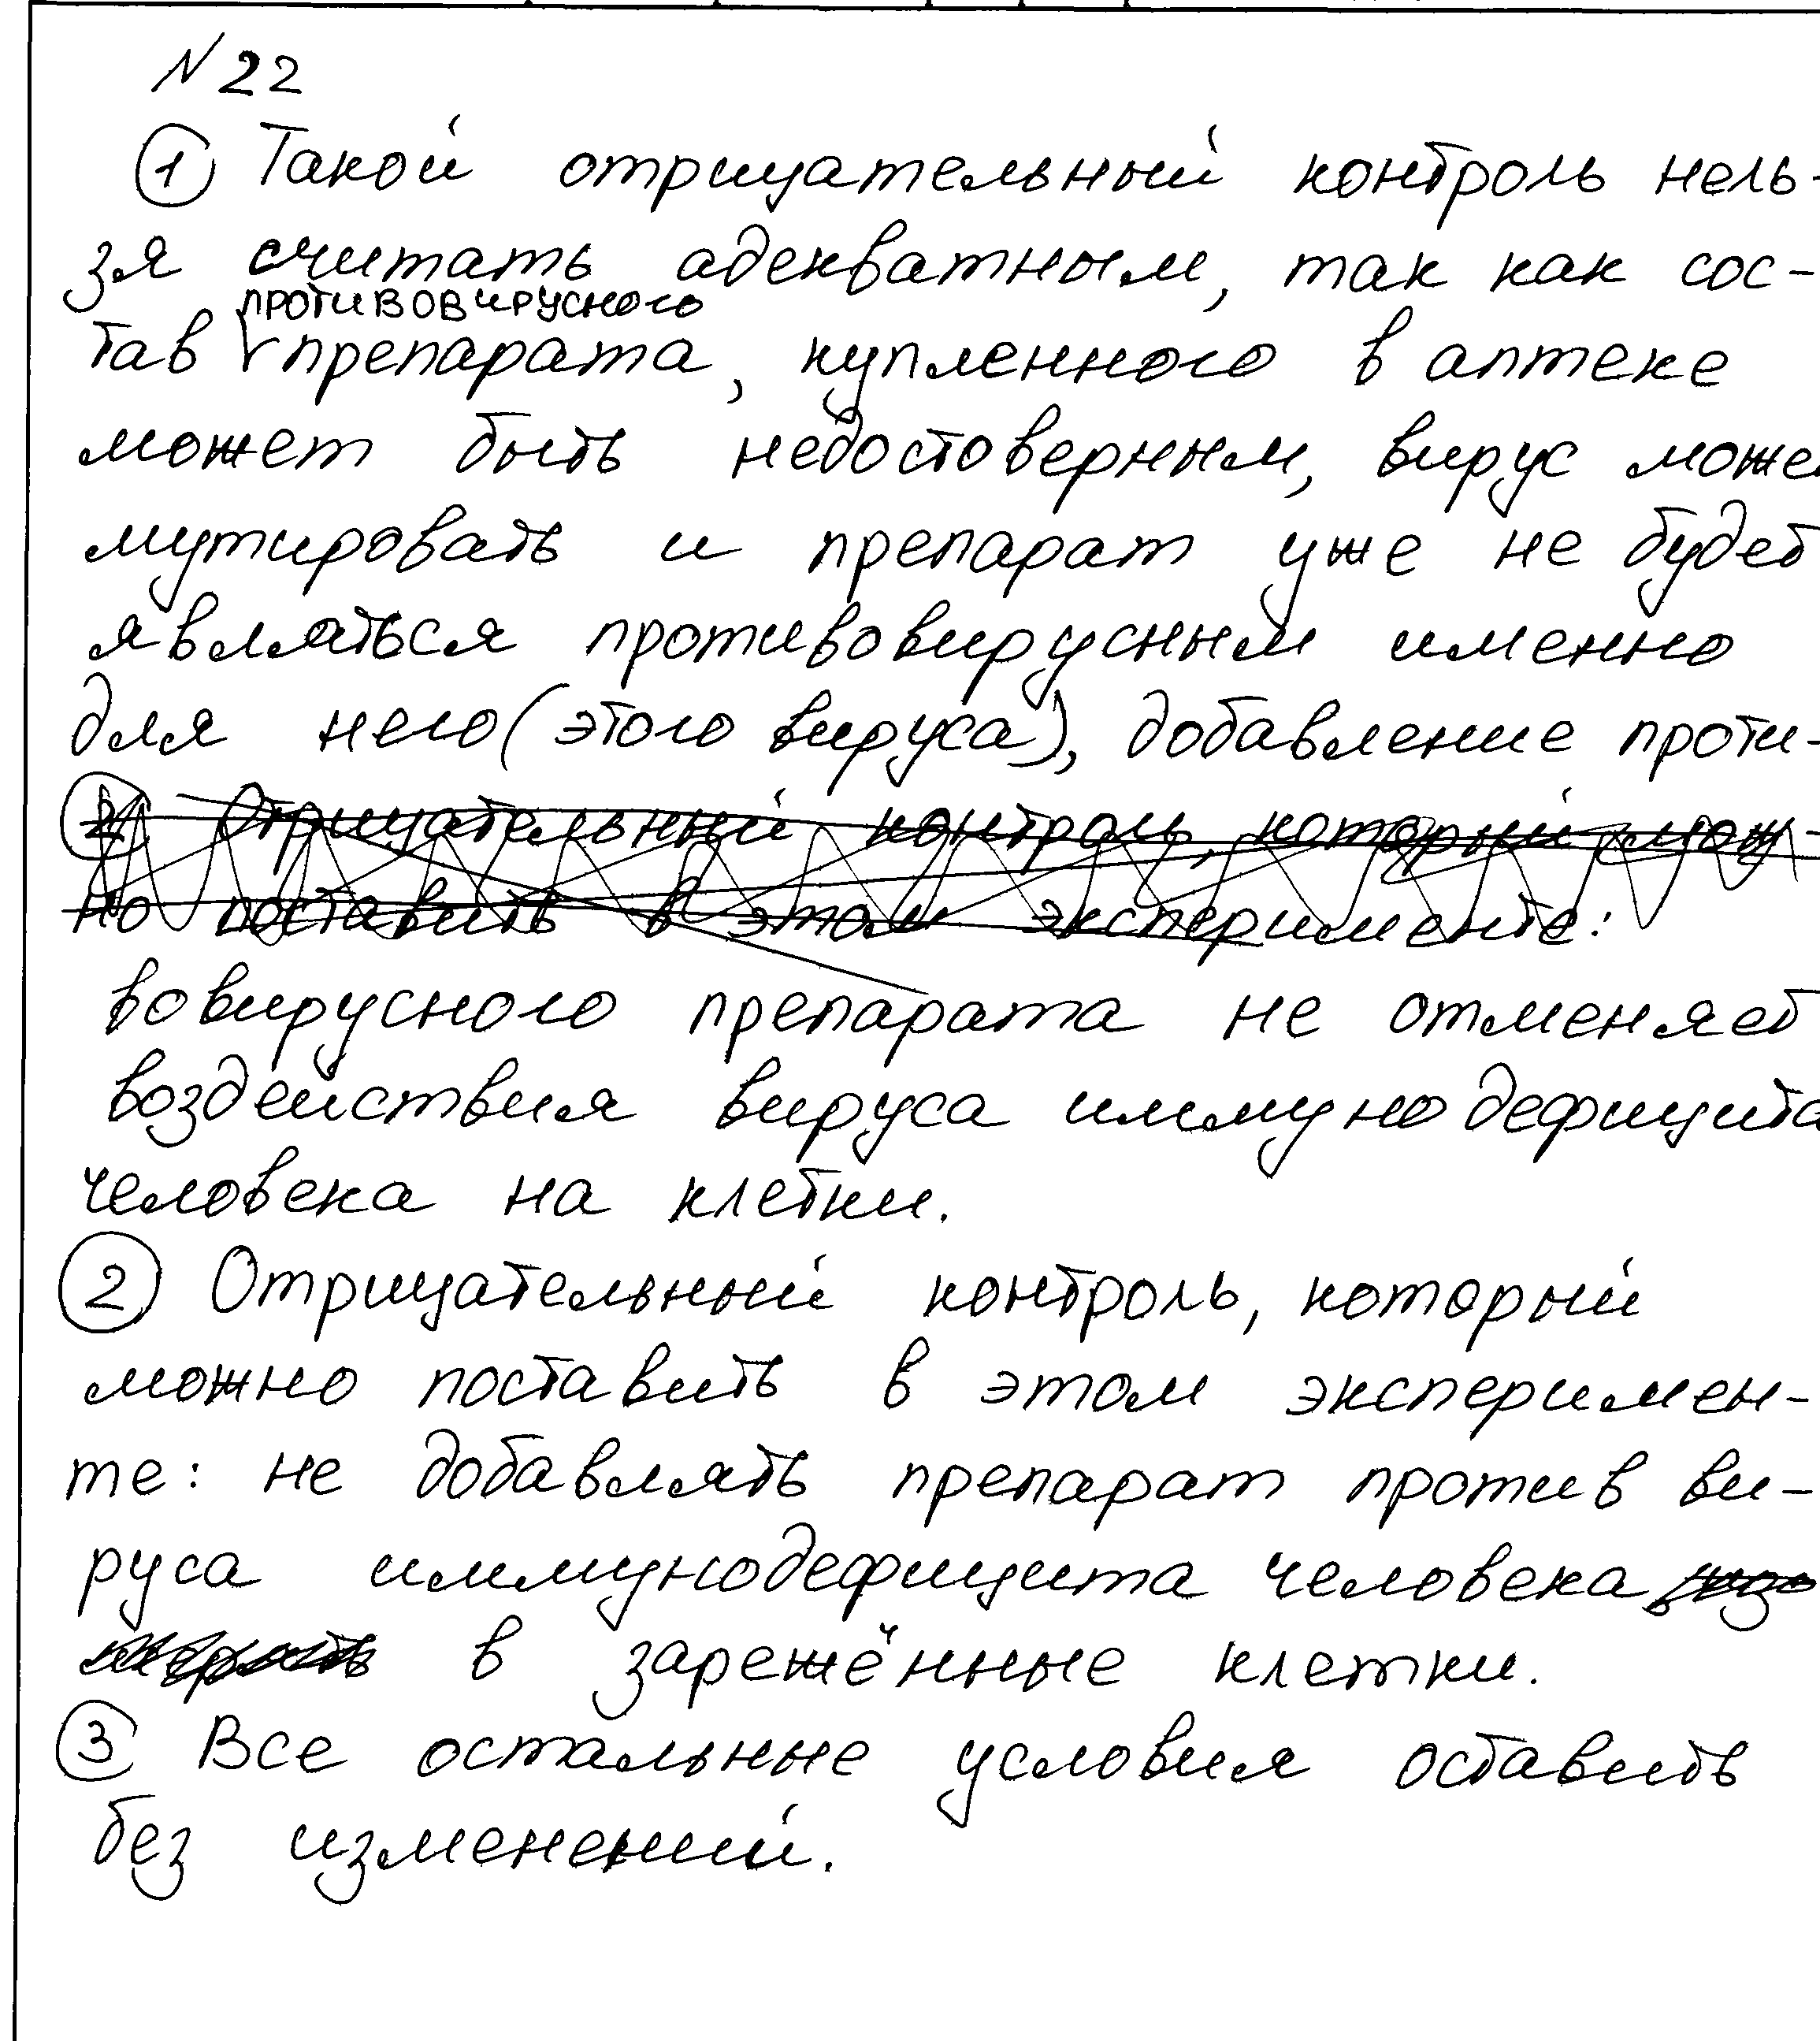 N 22
① Такой отрицательный контроль нель-
зя считать адекватным, так как сос-
противовирусного
тав препарата, купленного в аптеке
может быть недостоверным, вирус може
мутировать и препарат уже не будет
являться противовирусным именно
для него (этого вируса), добавление проти-
2 Отрицательный контроль, который мож-
но поставить в этом эксперименте:
вовирусного препарата не отменяет
воздействия вируса иммунодефицита
человека на клетки.
② Отрицательный контроль, который
можно поставить в этом эксперимен-
те: не добавлять препарат против ви-
руса иммунодефицита человека
в зарежённые клетки.
③ Все остальные условия оставить
без изменений.